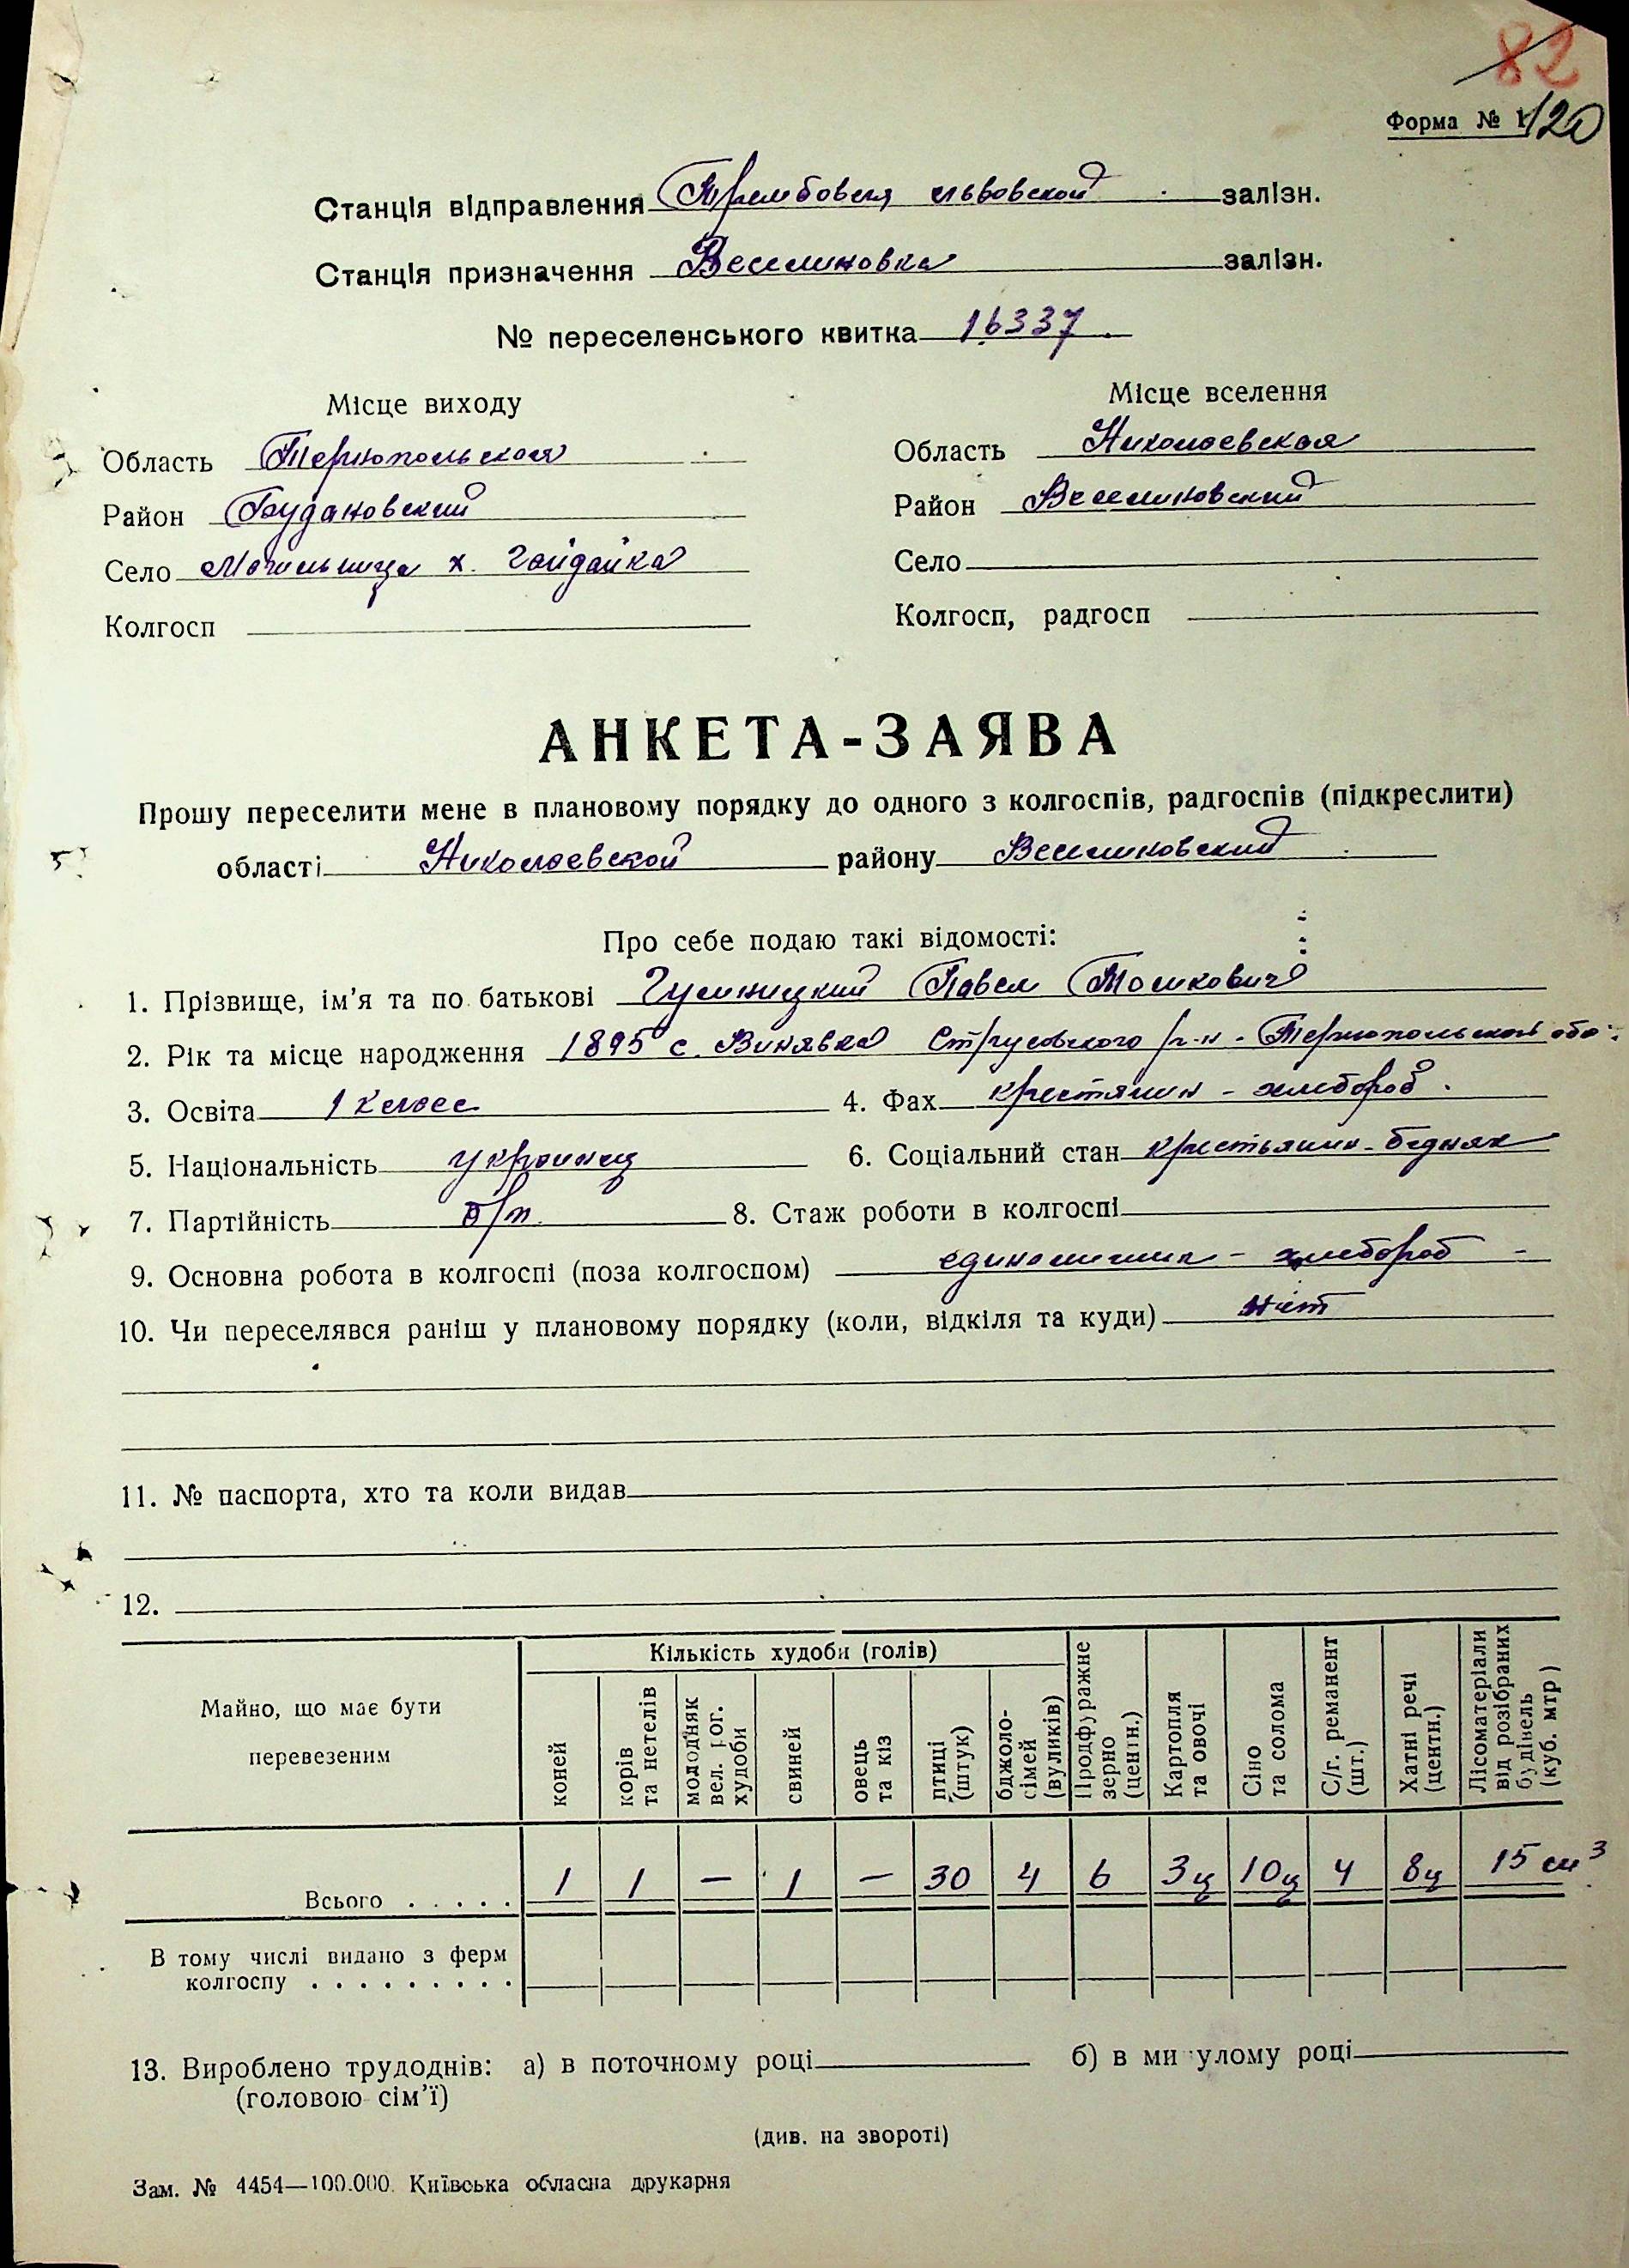 82
Форма № 1 120
Станція відправлення Трембовля Львовской залізн.
Станція призначення Веселиновка залізн.
№ переселенського квитка 16337
Місце виходу
Місце вселення
Область Тернопольская
Область Николаевская
Район Будановский
Район Веселиновский
Село Могильница х. Гайдайка
Село
Колгосп
Колгосп, радгосп
АНКЕТА-ЗАЯВА
Прошу переселити мене в плановому порядку до одного з колгоспів, радгоспів (підкреслити)
області Николаевской району Веселиновский
Про себе подаю такі відомості:
1. Прізвище, ім’я та по батькові Павел
2. Рік та місце народження 1895 с. Винявка Струсовского р-н. Тернопольской обл.
3. Освіта 1 класс 4. Фах крестянин - хлебороб.
5. Національність украинец 6. Соціальний стан крестьянин-бедняк
7. Партійність б/п. 8. Стаж роботи в колгоспі
9. Основна робота в колгоспі (поза колгоспом) единоличник - хлебороб -
10. Чи переселявся раніш у плановому порядку (коли, відкіля та куди) нет
11. № паспорта, хто та коли видав
12.
Майно, що має бути перевезеним
Кількість худоби (голів)
коней
корів та нетелів
молодняк вел. рог. худоби
свиней
овець та кіз
птиці (штук)
бджоло-сімей (вуликів)
Продфуражне зерно (центн.)
Картопля та овочі
Сіно та солома
С/г. реманент (шт.)
Хатні речі (центн.)
Лісоматеріали від розібраних будівель (куб. мтр)
Всього . . . . . 1 1 — 1 — 30 4 6 3ц 10ц 4 8ц 15 см³
В тому числі видано з ферм
колгоспу . . . . . . . . .
13. Вироблено трудоднів: а) в поточному році б) в минулому році
(головою сім’ї)
(див. на звороті)
Зам. № 4454—100.000. Київська обласна друкарня